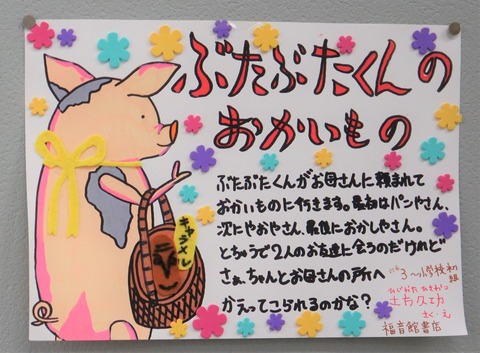 ぶたぶたくんの
おかいもの
ぶたぶたくんがお母さんに頼まれて
おかいものに行きます。最初はパンやさん、
次にやおやさん、最後におかしやさん。
とちゅうで2人のお友達に会うのだけれど
さぁ、ちゃんとお母さんの所へ
かえってこられるのかな?
3~小学校初級
ひじかた ひさかつ
土方久功
さく・え
福音館書店
キャラメル